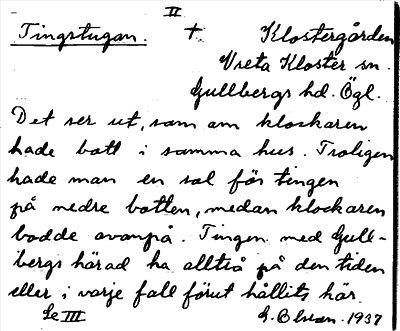 II
Tingstugan. + Klostergården
Vreta Kloster sn.
Gullbergs hd. Ögl.
Det ser ut, som om klockaren
hade bott i samma hus. Troligen
hade man en sal för tingen
på nedre botten, medan klockaren
bodde ovanpå. Tingen med Gull-
bergs härad ha alltså på den tiden
eller i varje fall förut hållits här.
Se III G. 1937